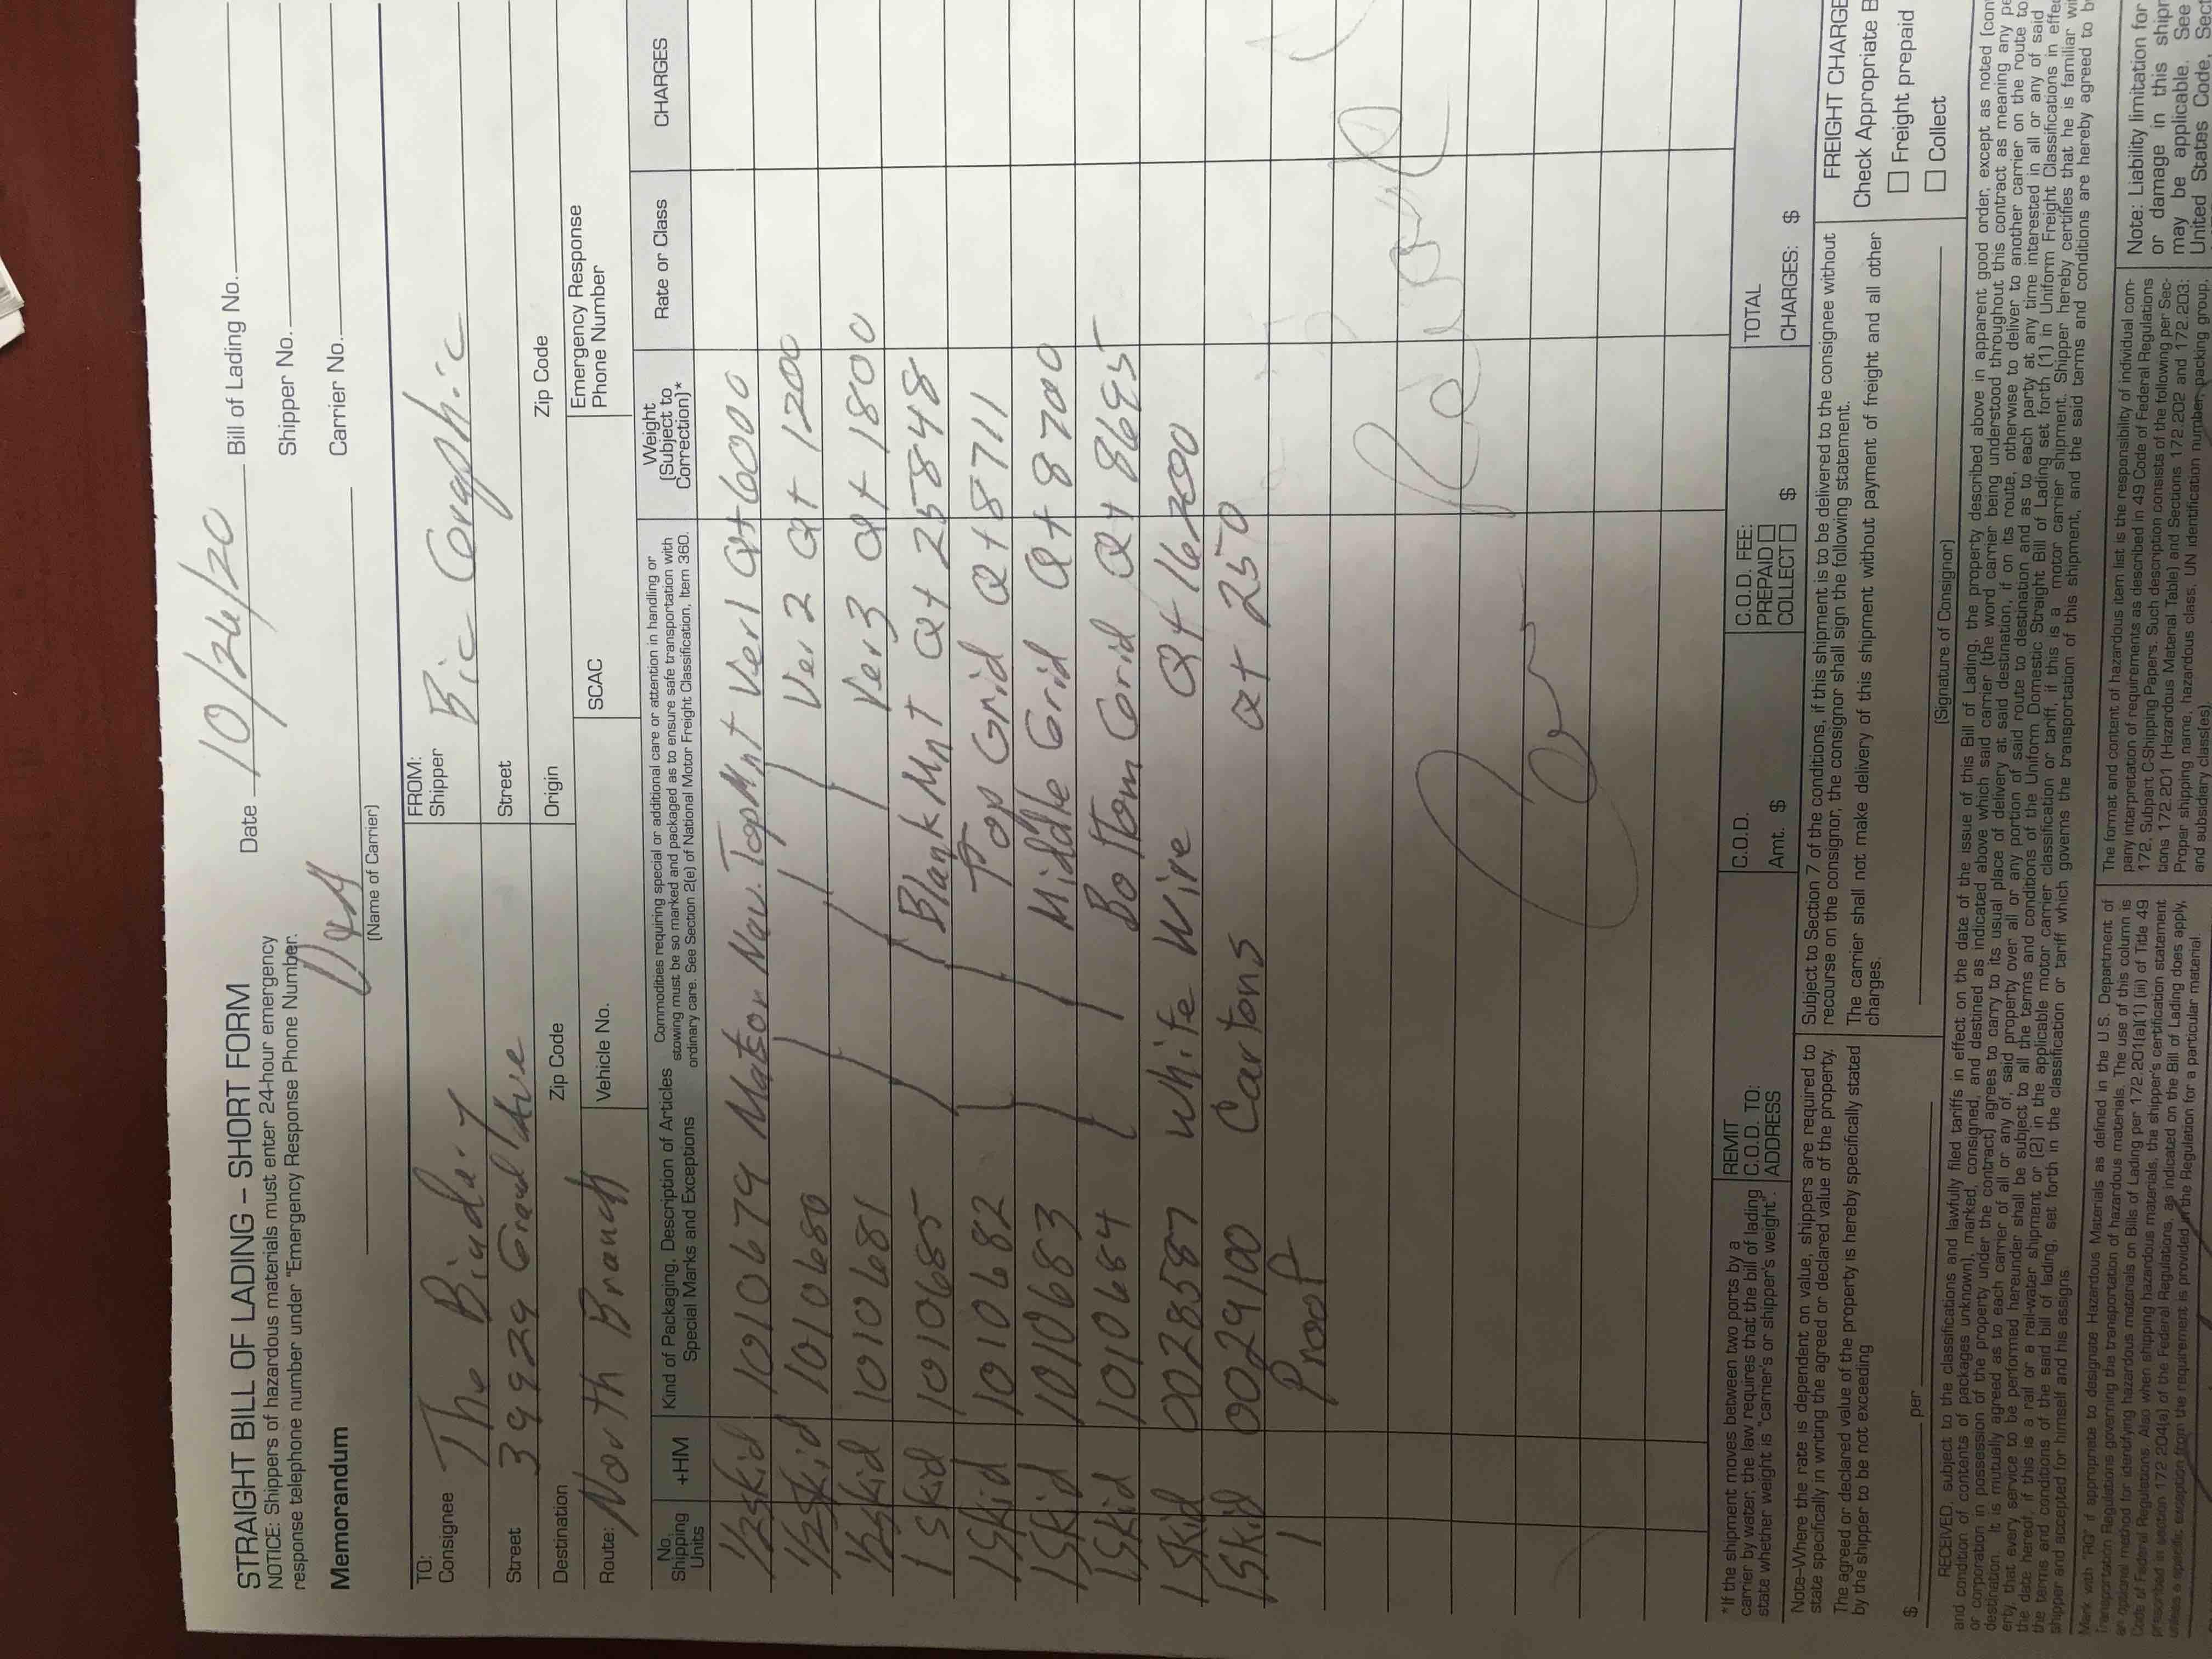 STRAIGHT BILL OF LADING – SHORT FORM
NOTICE: Shippers of hazardous materials must enter 24-hour emergency
response telephone number under "Emergency Response Phone Number.
Date 10/26/20 Bill of Lading No.
Shipper No.
Memorandum
(Name of Carrier)
Carrier No.
TO:
Consignee The Bindery
Street 39929 Grand Ave
Destination
Zip Code
FROM:
Shipper Bic Graphic
Street
Origin
Zip Code
Route: North Branch
Vehicle No.
SCAC
Emergency Response
Phone Number
No.
Shipping
Units
+HM
Kind of Packaging, Description of Articles
Special Marks and Exceptions
Commodities requiring special or additional care or attention in handling or
stowing must be so marked and packaged as to ensure safe transportation with
ordinary care. See Section 2(e) of National Motor Freight Classification, Item 360.
Weight
(Subject to
Correction)*
Rate or Class
CHARGES
1/2 skid 1010679 Matson Nav. Top Mnt Ver 1 Qt 6000
1/2 skid 1010680 Ver 2 Qt 1200
1/2 skid 1010681 Ver 3 Qt 1800
1 skid 1010685 Blank Mnt Qt 25848
1 skid 1010682 Top Grid Qt 8711
1 skid 1010683 Middle Grid Qt 8700
1 skid 1010684 Bottom Grid Qt 8695
1 skid 0028587 White Wire Qt 16200
1 skid 0029100 Cartons Qt 250
1 Proof
*If the shipment moves between two ports by a
carrier by water, the law requires that the bill of lading
state whether weight is "carrier's or shipper's weight".
REMIT
C.O.D. TO:
ADDRESS
C.O.D.
Amt. $
C.O.D. FEE:
PREPAID
COLLECT $
TOTAL
CHARGES: $
Note–Where the rate is dependent on value, shippers are required to
state specifically in writing the agreed or declared value of the property.
The agreed or declared value of the property is hereby specifically stated
by the shipper to be not exceeding
$ per
Subject to Section 7 of the conditions, if this shipment is to be delivered to the consignee without
recourse on the consignor, the consignor shall sign the following statement.
The carrier shall not make delivery of this shipment without payment of freight and all other
charges.
(Signature of Consignor)
FREIGHT CHARGE
Check Appropriate B
Freight prepaid
Collect
RECEIVED, subject to the classifications and lawfully filed tariffs in effect on the date of the issue of this Bill of Lading, the property described above in apparent good order, except as noted (con
and condition of contents of packages unknown), marked, consigned, and destined as indicated above which said carrier (the word carrier being understood throughout this contract as meaning any pe
or corporation in possession of the property under the contract) agrees to carry to its usual place of delivery at said destination, if on its route, otherwise to deliver to another carrier on the route to
destination. It is mutually agreed as to each carrier of all or any of, said property over all or any portion of said route to destination and as to each party at any time interested in all or any of said
erty, that every service to be performed hereunder shall be subject to all the terms and conditions of the Uniform Domestic Straight Bill of Lading set forth (1) in Uniform Freight Classifications in effec
the date hereof, if this is a rail or a rail-water shipment or (2) in the applicable motor carrier classification or tariff, if this is a motor carrier shipment. Shipper hereby certifies that he is familiar wi
the terms and conditions of the said bill of lading, set forth in the classification or tariff which governs the transportation of this shipment, and the said terms and conditions are hereby agreed to b
shipper and accepted for himself and his assigns
Mark with "RQ" if appropriate to designate Hazardous Materials as defined in the U.S. Department of
Transportation Regulations governing the transportation of hazardous materials. The use of this column is
an optional method for identifying hazardous materials on Bills of Lading per 172.201(a)(1)(iii) of Title 49
Code of Federal Regulations. Also when shipping hazardous materials, the shipper's certification statement
prescribed in section 172.204(a) of the Federal Regulations, as indicated on the Bill of Lading does apply,
unless a specific exception from the requirement is provided in the Regulation for a particular material.
The format and content of hazardous item list is the responsibility of individual com-
pany interpretation of requirements as described in 49 Code of Federal Regulations
172, Subpart C-Shipping Papers. Such description consists of the following per Sec-
tions 172.201 (Hazardous Material Table) and Sections 172.202 and 172.203:
Proper shipping name, hazardous class, UN identification number, packing group,
and subsidiary class(es).
Note: Liability limitation for
or damage in this shipr
may be applicable. See
United States Code, Sect